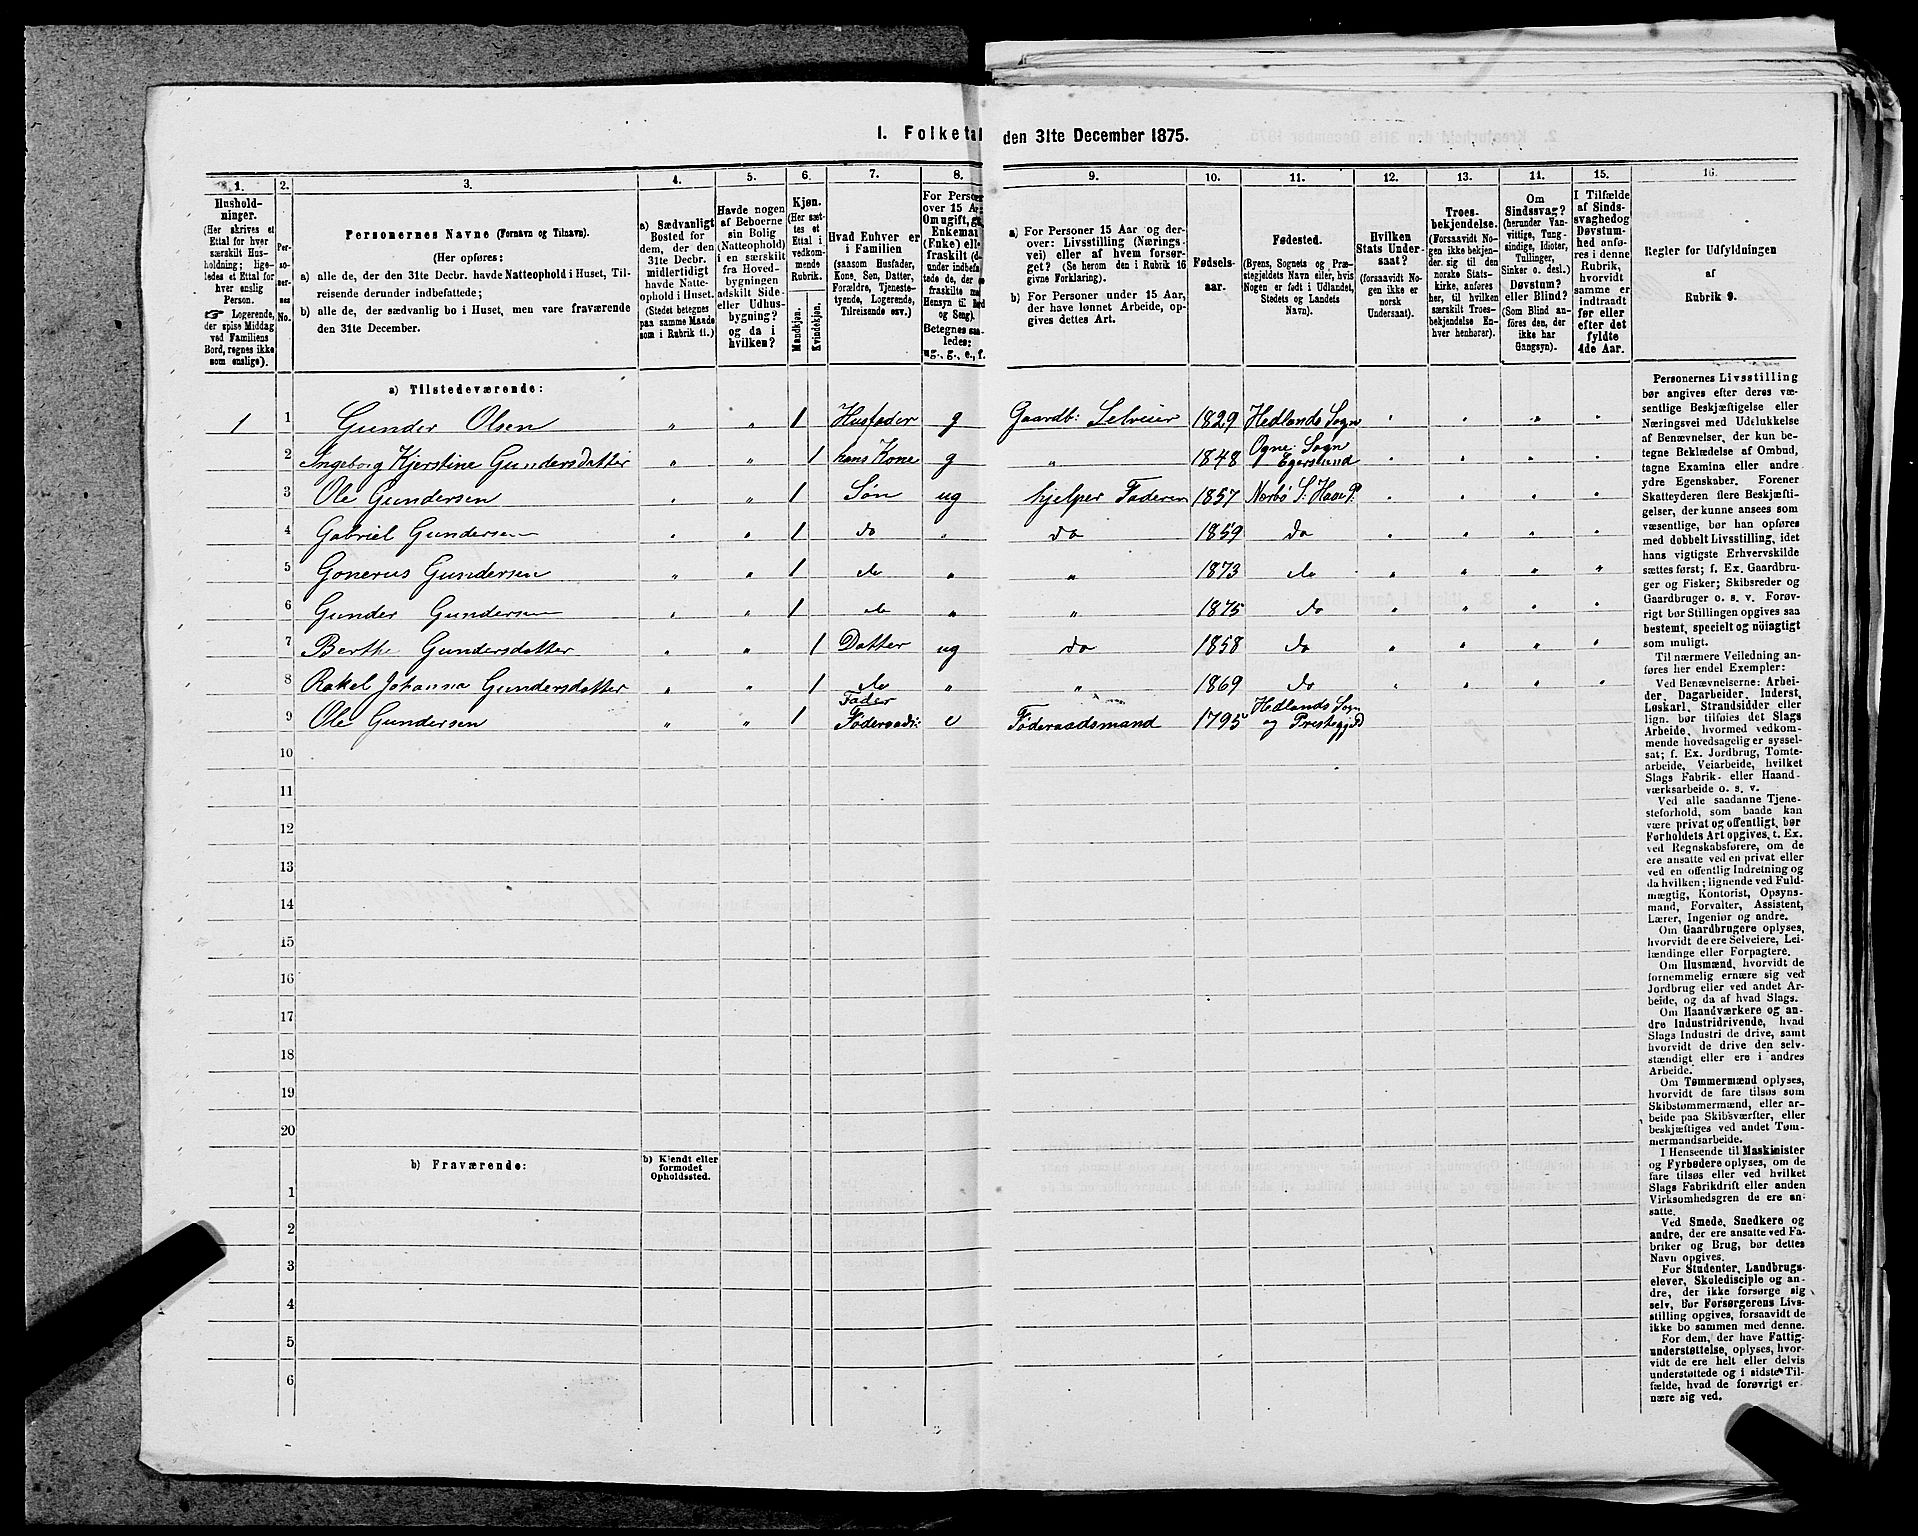 I. Folketal den 31te December 1875.
1.
2.
3.
4.
5.
6.
7.
8.
9.
10.
11.
12.
13.
14.
15.
16.
Hushold-
ninger.
(Her skrives et
Ettal for hver
særskilt Hus-
holdning; lige-
ledes et Ettal for
hver enslig
Person.
☞ Logerende,
der spise Middag
ved Familiens
Bord, regnes ikke
som enslige).
Per-
so-
ner-
nes
No.
Personernes Navne (Fornavn og Tilnavn).
(Her opføres:
a) alle de, der den 31te Decbr. havde Natteophold i Huset, Til-
reisende derunder indbefattede;
b) alle de, der sædvanlig bo i Huset, men vare fraværende
den 31te December.
a) Sædvanligt
Bosted for
dem, der den
31te Decbr.
midlertidigt
havde Natte-
ophold i Huset.
(Stedet betegnes
paa samme Maade
som i Rubrik 11.)
Havde nogen
af Beboerne
sin Bolig
(Natteophold)
i en særskilt
fra Hoved-
bygningen
adskilt Side-
eller Udhus-
bygning?
og da i
hvilken?
Kjøn.
(Her sæt-
tes et
Ettal i
vedkom-
mende
Rubrik.
Mandkjøn.
Kvindekjøn.
Hvad Enhver er
i Familien
(saasom Husfader,
Kone, Søn, Datter,
Forældre, Tjeneste-
tyende, Logerende,
Tilreisende osv.)
For Person
over 15 A
Om ugift, g
Enkema
(Enke) elle
fraskilt (d
under indbefa
tede de, der
fraskilte m
Hensyn til B
og Seng).
Betegnes saa-
ledes:
ug., g., e., f.
a) For Personer 15 Aar og der-
over: Livsstilling (Nærings-
vei) eller af hvem forsør-
get? (Se herom den i Rubrik 16
givne Forklaring).
b) For Personer under 15 Aar,
der have lønnet Arbeide, op-
gives dettes Art.
Fødsels-
aar.
Fødested.
(Byens, Sognets og Præ-
stegjeldets Navn eller, hvis
Nogen er født i Udlandet,
Stedets og Landets
Navn).
Hvilken
Stats Under-
saat?
(forsaavidt No-
gen ikke er
norsk
Undersaat).
Troes-
bekjendelse.
(Forsaavidt No-
gen ikke bekjen-
der sig til den
norske Stats-
kirke, anføres
her, til hvilken
særskilt Troes-
bekjendelse En-
hver henhører).
Om
Sindssvag?
(herunder Van-
vittige, Tung-
sindige, Idioter,
Tullinger,
Sinker o. desl.)
Døvstum?
eller Blind?
(Som Blind an-
føres den, der
ikke har
Gangsyn).
I Tilfælde
af Sinds-
svaghed og
Døvstum-
hed anfø-
res i denne
Rubrik,
hvorvidt
samme er
indtraadt
før eller
efter det
fyldte
4de Aar.
Regler for Udfyldningen
af
Rubrik 9.
a) Tilstedeværende:
1 1 Gunder Olsen " " 1 Husfader g Gaardb: Selveier 1829 Hedlands Sogn
2 Ingeborg Kjerstine Gundersdatter " " 1 hans Kone g " 1848 Ogne Sogn Egersund
3 Ole Gundersen " " 1 Søn ug hjelper Faderen 1857 Norbø S: Haae P.
4 Gabriel Gundersen " " 1 do " do 1859 do
5 Gonerus Gundersen " " 1 do " " 1873 do
6 Gunder Gundersen " " 1 do " " 1875 do
7 Berthe Gundersdatter " " 1 Datter ug do 1858 do
8 Rakel Johanna Gundersdatter " " 1 do " " 1869 do
9 Ole Gundersen " " 1 Fader Føderaads: e Føderaadsmand 1795 Hedlands Sogn og Prestegjeld
10
11
12
13
14
15
16
17
18
19
20
b) Fraværende:
b) Kjendt eller
formodet
Opholdssted.
1
2
3
4
5
6
Personernes Livsstilling
bør angives efter deres væ-
sentlige Beskjæftigelse eller
Næringsvei med Udelukkelse
af Benævnelser, der kun be-
tegne Beklædelse af Ombud,
tagne Examina eller andre
ydre Egenskaber. Forener
Skatteyderen flere Beskjæfti-
gelser, der kunne ansees som
væsentlige, bør han opføres
med dobbelt Livsstilling, idet
hans vigtigste Erhvervskilde
sættes først; f. Ex. Gaardbru-
ger og Fisker; Skibsreder og
Gaardbruger o. s. v. Forøv-
rigt bør Stillingen opgives saa
bestemt, specielt og nøiagtigt
som muligt.
Til nærmere Veiledning an-
føres her endel Exempler:
Ved Benævnelserne: Arbei-
der, Dagarbeider, Inderst,
Løskarl, Strandsidder eller
lign. bør tilføies det Slags
Arbeide, hvormed vedkom-
mende hovedsagelig er syssel-
sat; f. Ex. Jordbrug, Tomte-
arbeide, Veiarbeide, hvilket
Slags Fabrik- eller Haand-
værksarbeide o. s. v.
Ved alle saadanne Tjene-
steforhold, som baade kan
være privat og offentligt, bør
Forholdets Art opgives, t. Ex.
ved Regnskabsførere, om de
ere ansatte ved en privat eller
ved en offentlig Indretning og
da hvilken; lignende ved Fuld-
mægtig, Kontorist, Opsyns-
mand, Forvalter, Assistent,
Lærer, Ingeniør og andre.
Om Gaardbrugere oplyses,
hvorvidt de ere Selveiere, Lei-
lændinge eller Forpagtere.
Om Husmænd, hvorvidt de
fornemmelig ernære sig ved
Jordbrug eller ved andet Ar-
beide, og da af hvad Slags.
Om Haandværkere og an-
dre Industridrivende, hvad
Slags Industri de drive, samt
hvorvidt de drive den selv-
stændigt eller ere i andres
Arbeide.
Om Tømmermænd oplyses,
hvorvidt de fare tilsøs som
Skibstømmermænd, eller ar-
beide paa Skibsværfter, eller
beskjæftiges ved andet Tøm-
mermandsarbeide.
I Henseende til Maskinister
og Fyrbødere oplyses, om de
fare tilsøs eller ved hvilket
Slags Fabrikdrift eller anden
Virksomhedsgren de ere an-
satte.
Ved Smede, Snedkere og
andre, der ere ansatte ved Fa-
briker og Brug, bør dettes
Navn opgives.
For Studenter, Landbrugs-
elever, Skoledisciple og an-
dre, der ikke forsørge sig
selv, bør Forsørgerens Livs-
stilling opgives, forsaavidt de
ikke bo sammen med denne.
For dem, der have Fattig-
understøttelse, oplyses, hvor-
vidt de ere helt eller delvis
understøttede og i sidste Til-
fælde, hvad de forøvrigt er-
nære sig ved.